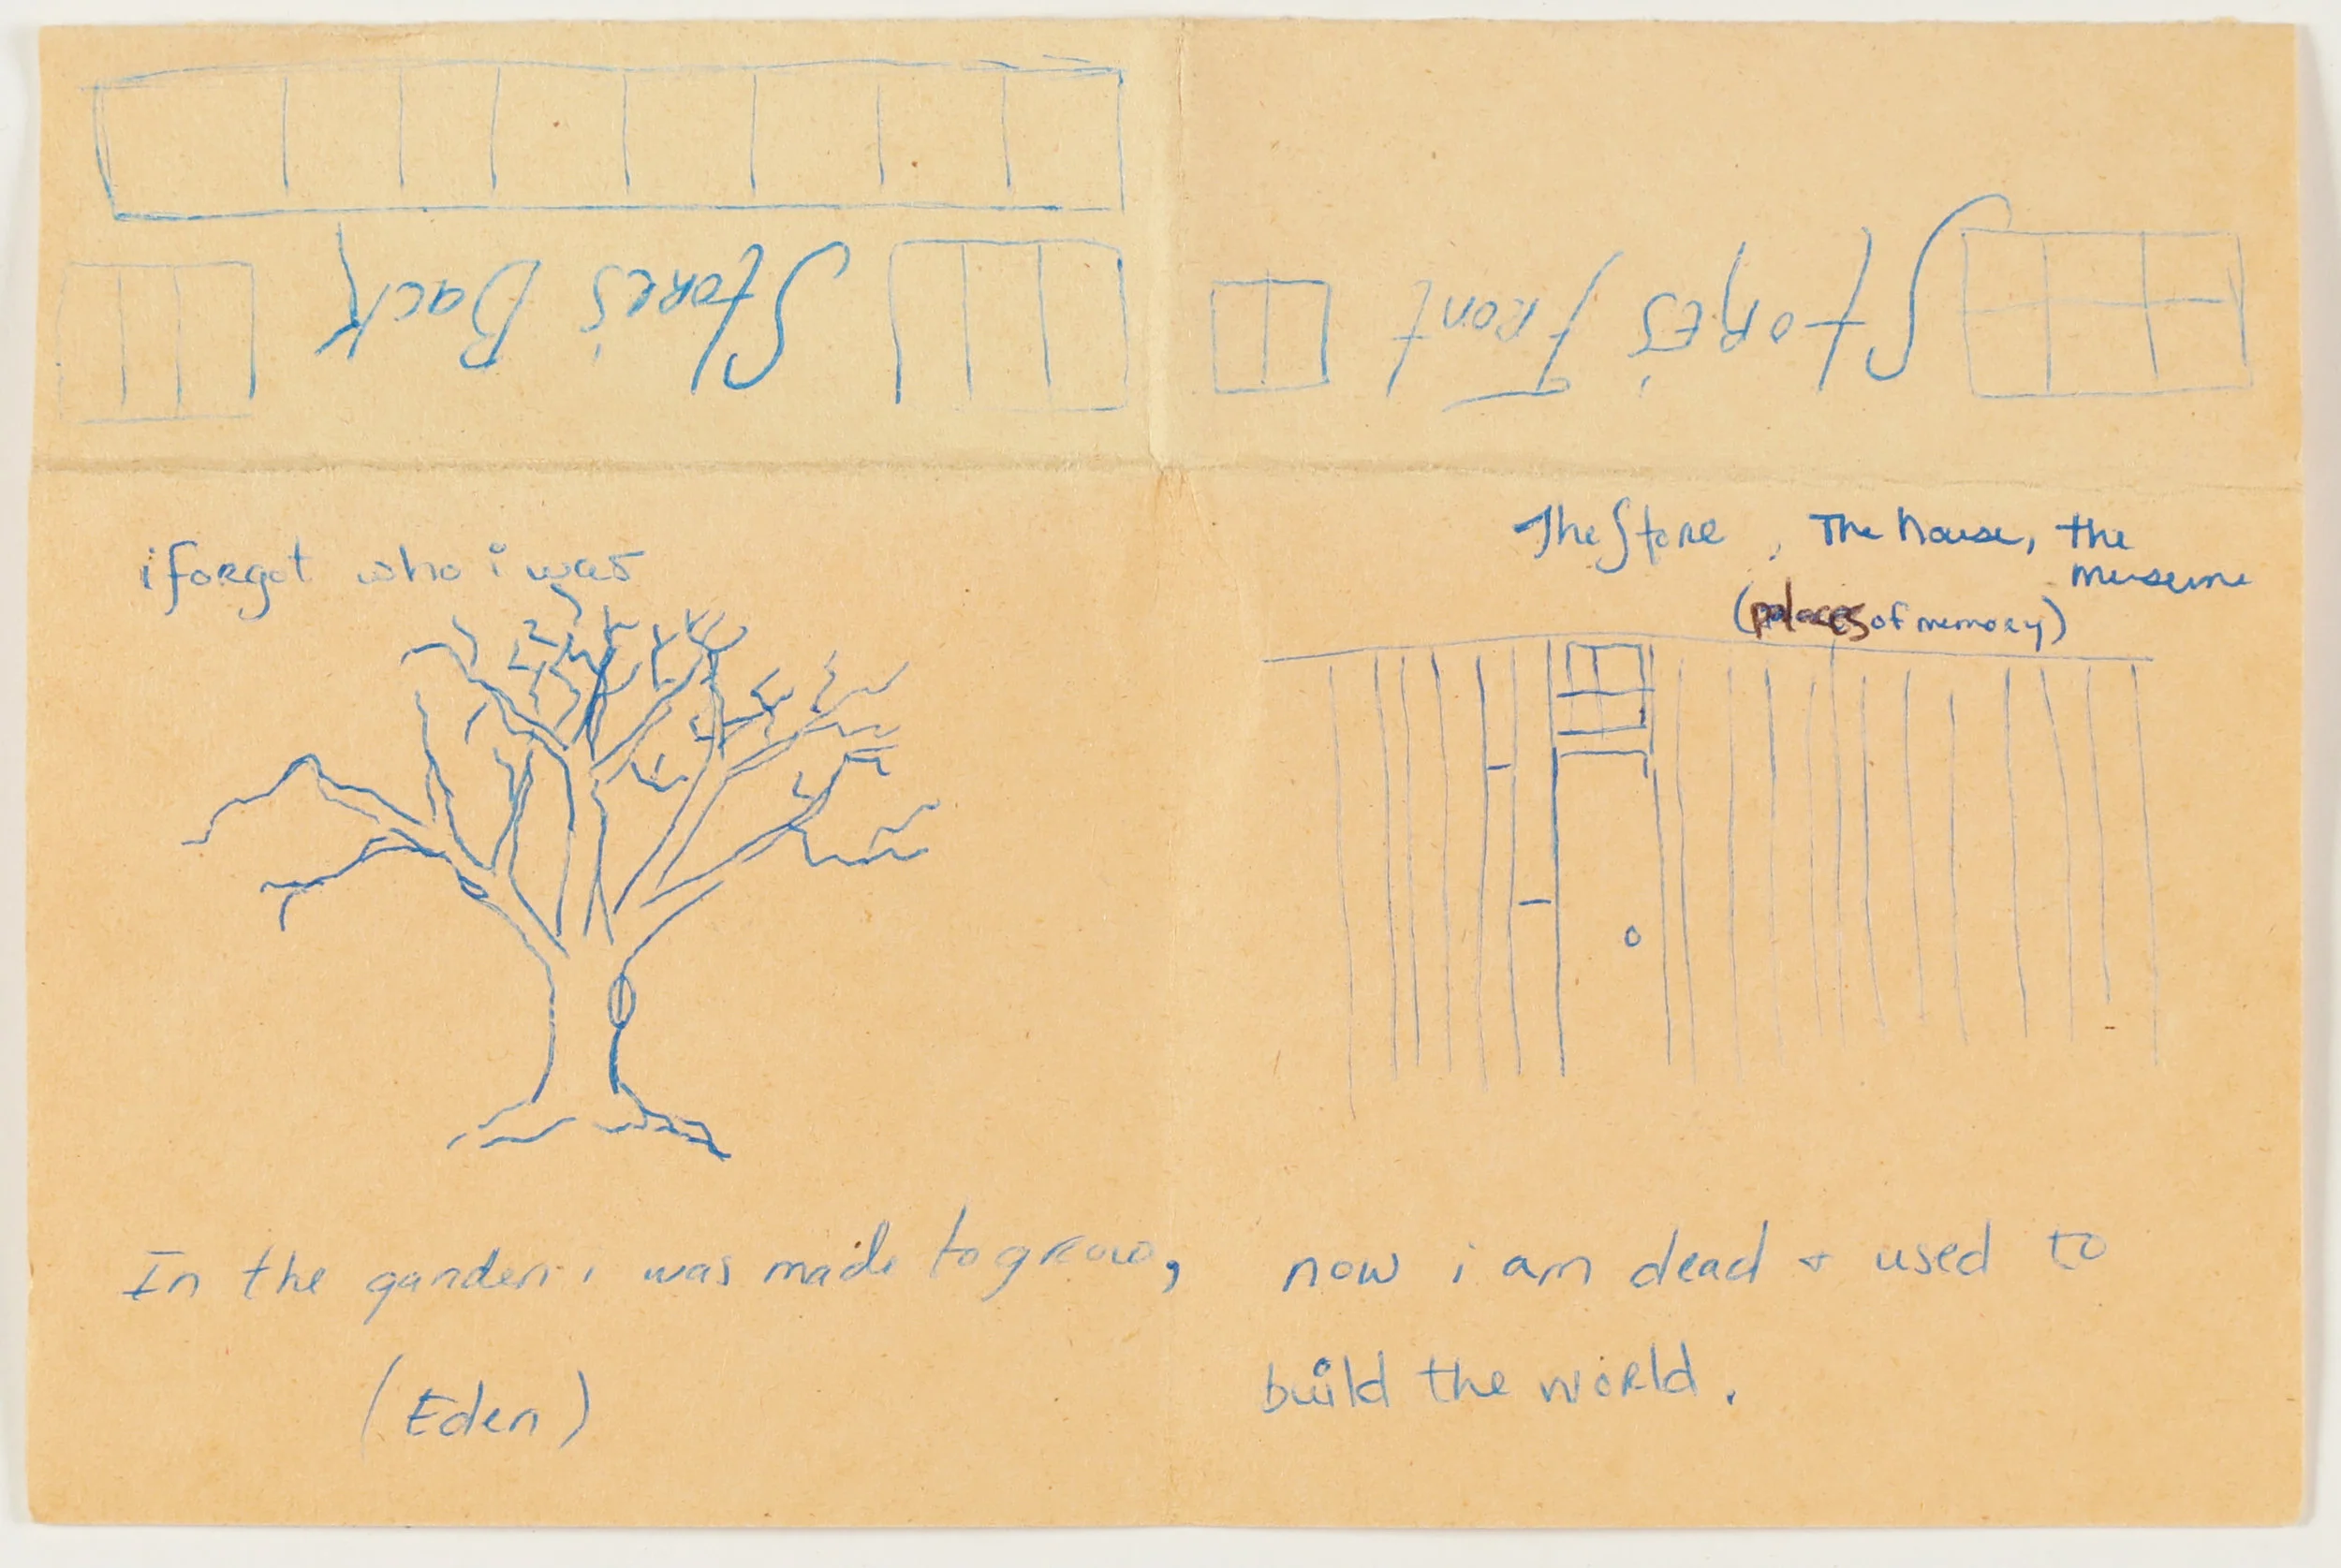 Store's Back
Store's Front
i forgot who i was
The Store, The house, the
museum
(palaces of memory)
In the garden i was made to grow,
(Eden)
now i am dead + used to
build the world.